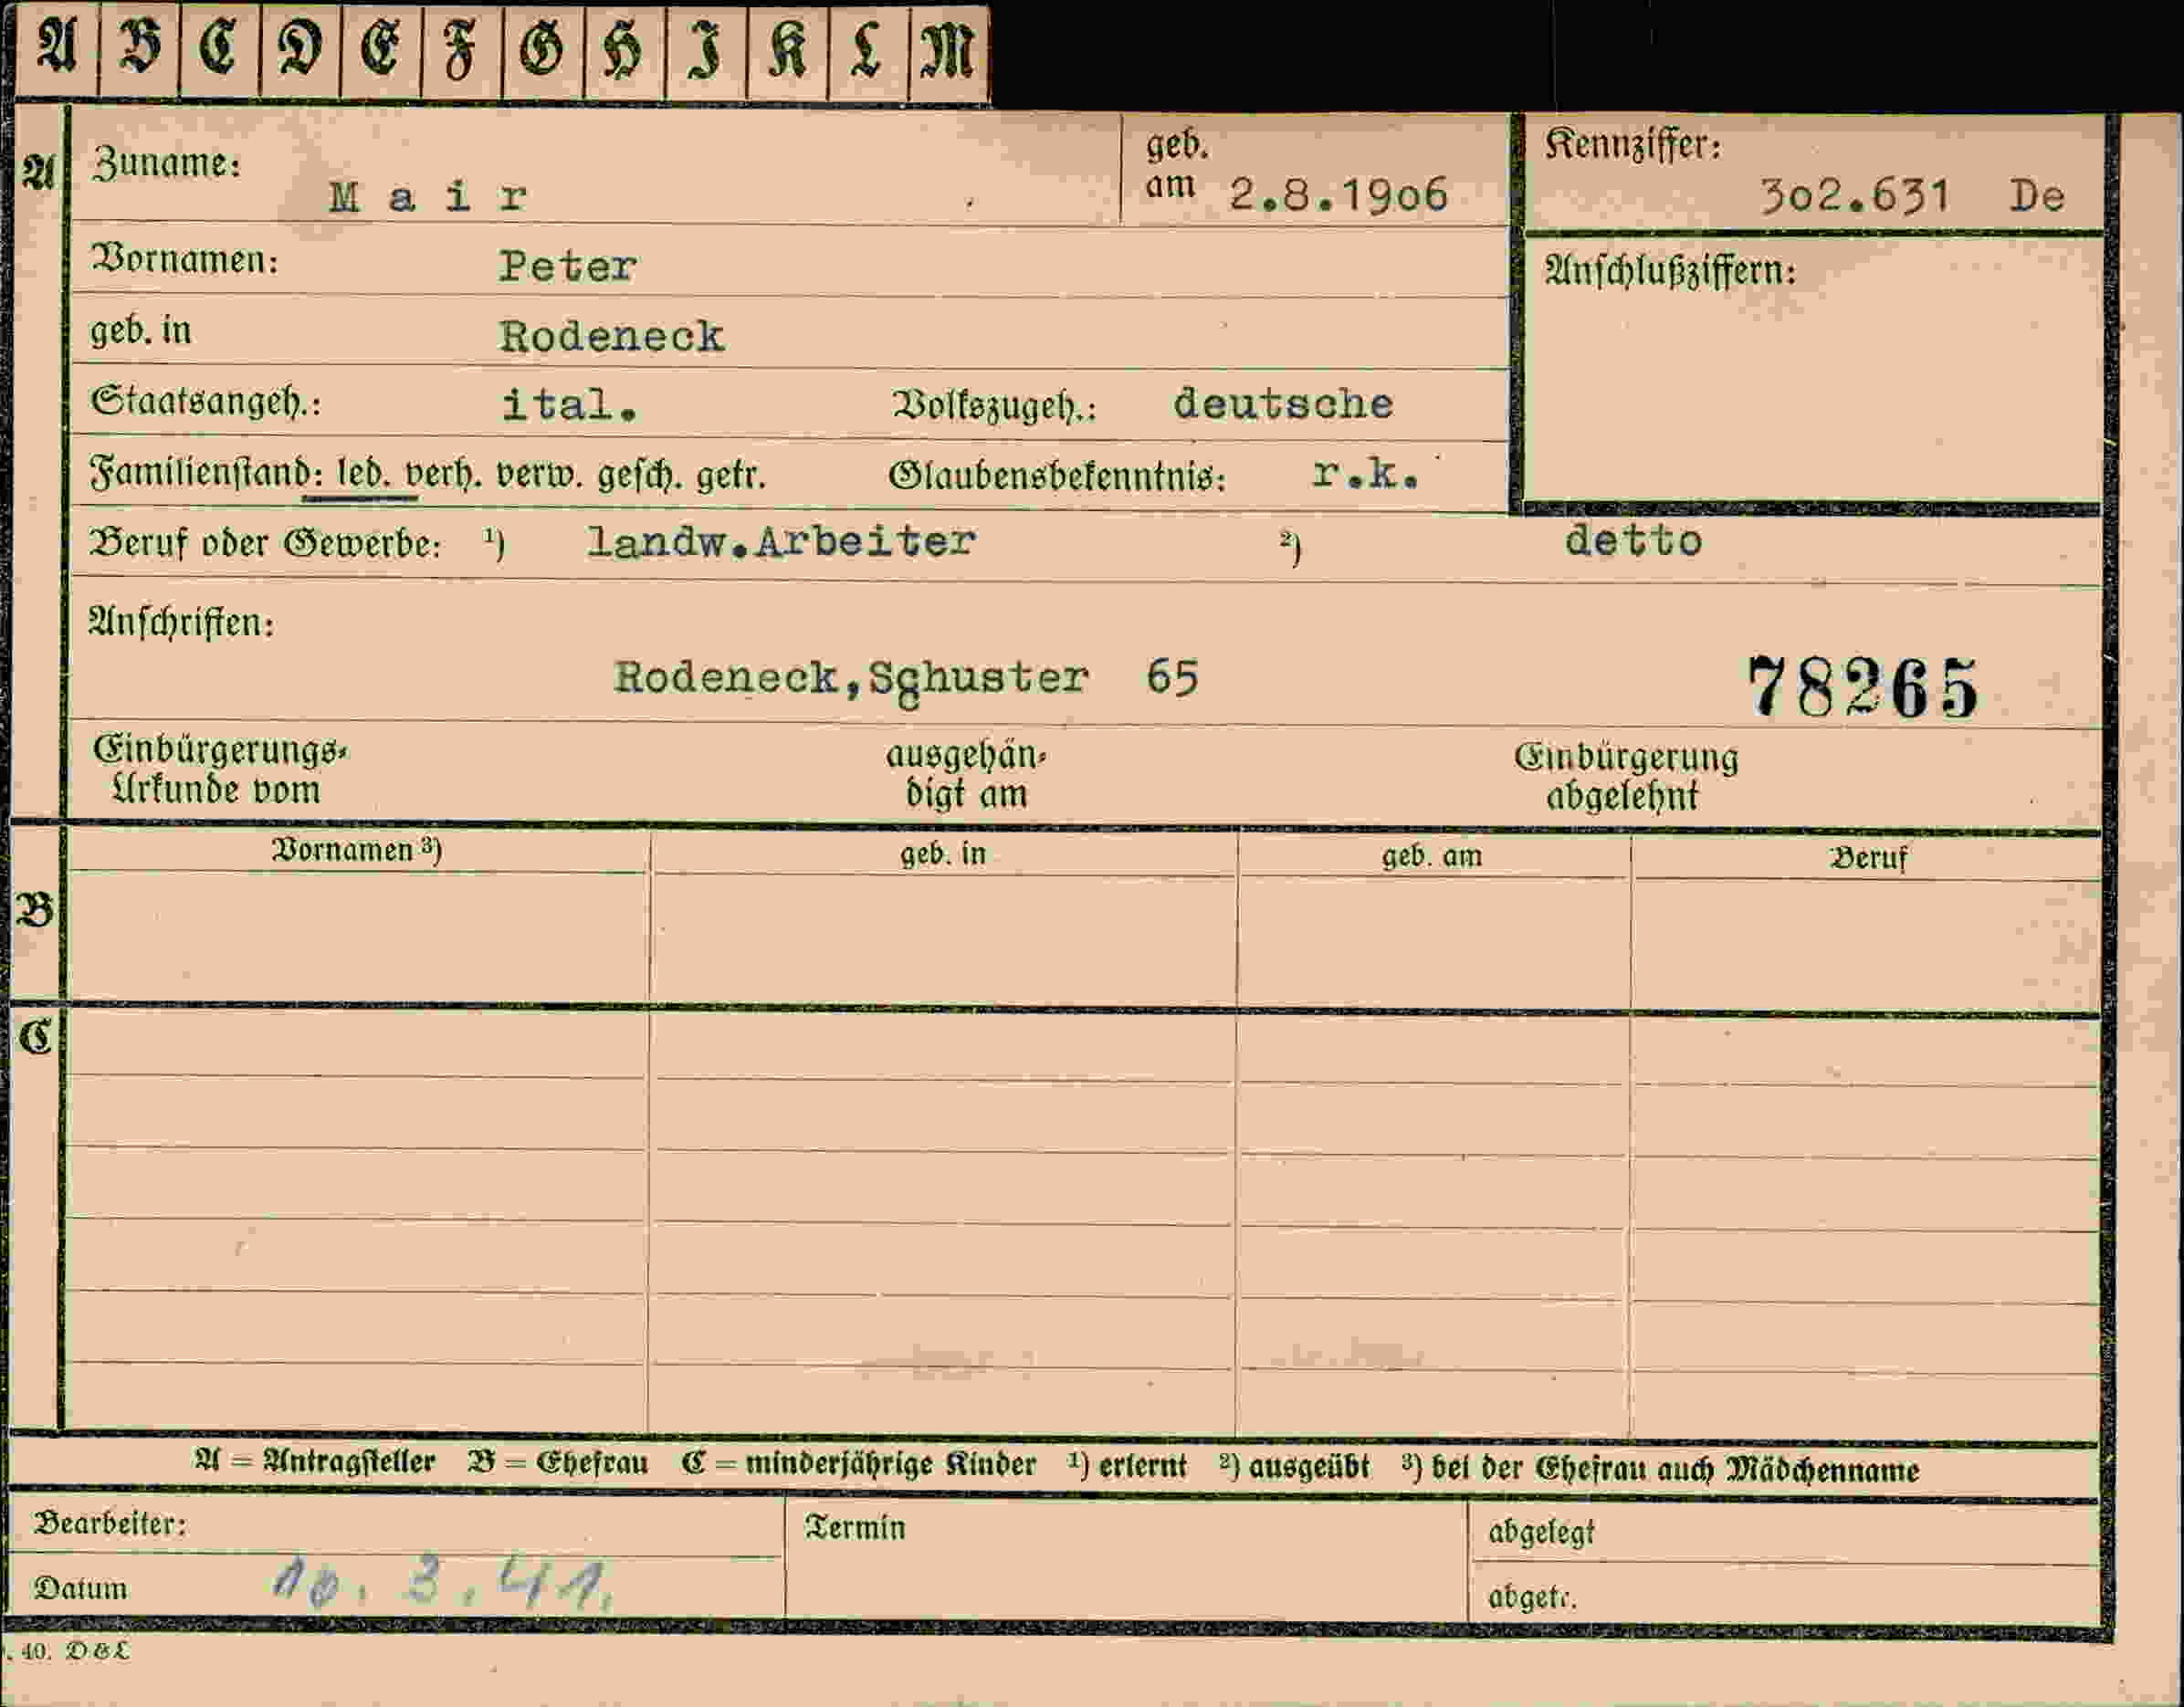 A B C D E F G H I K L M
A Zuname: Mair geb. am 2.8.1906 Kennziffer: 302.631 De
Vornamen: Peter Anschlußziffern:
geb. in Rodeneck
Staatsangeh.: ital. Volkszugeh.: deutsche
Familienstand: led. verh. verw. gesch. getr. Glaubensbekenntnis: r.k.
Beruf oder Gewerbe: ¹) landw.Arbeiter ²) detto
Anschriften:
Rodeneck,Sghuster 65 78265
Einbürgerungs- ausgehän- Einbürgerung
Urkunde vom digt am abgelehnt
Vornamen ³) geb. in geb. am Beruf
B
C
A = Antragsteller B = Ehefrau C = minderjährige Kinder ¹) erlernt ²) ausgeübt ³) bei der Ehefrau auch Mädchenname
Bearbeiter: Termin abgelegt
Datum 10.3.41. abgetr.
. 40. D&L